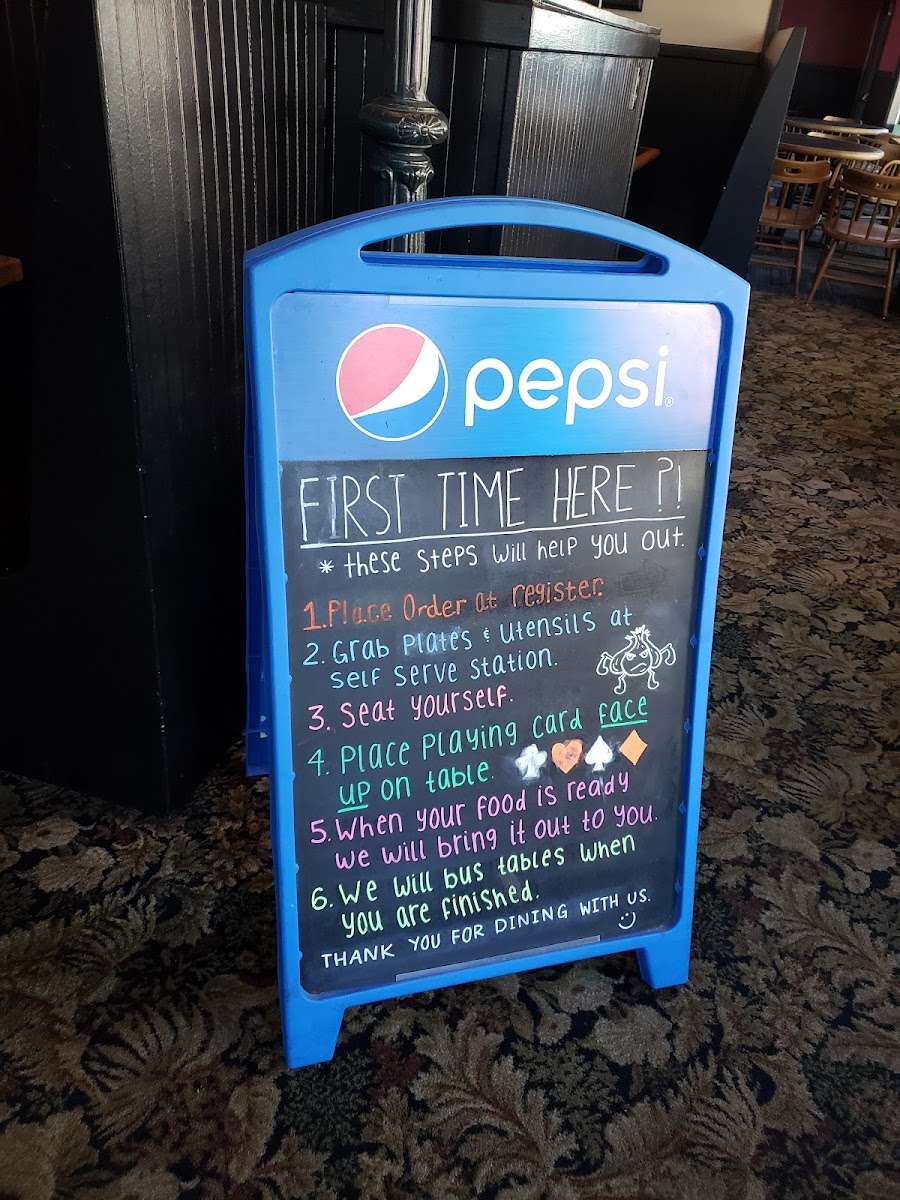 pepsi®
FIRST TIME HERE ?!
* these steps will help you out.
1. Place Order at register.
2. Grab Plates & utensils at
self serve station.
3. Seat yourself.
4. Place Playing card face
up on table.
5. When your food is ready
we will bring it out to you.
6. We will bus tables when
you are finished.
THANK YOU FOR DINING WITH US.